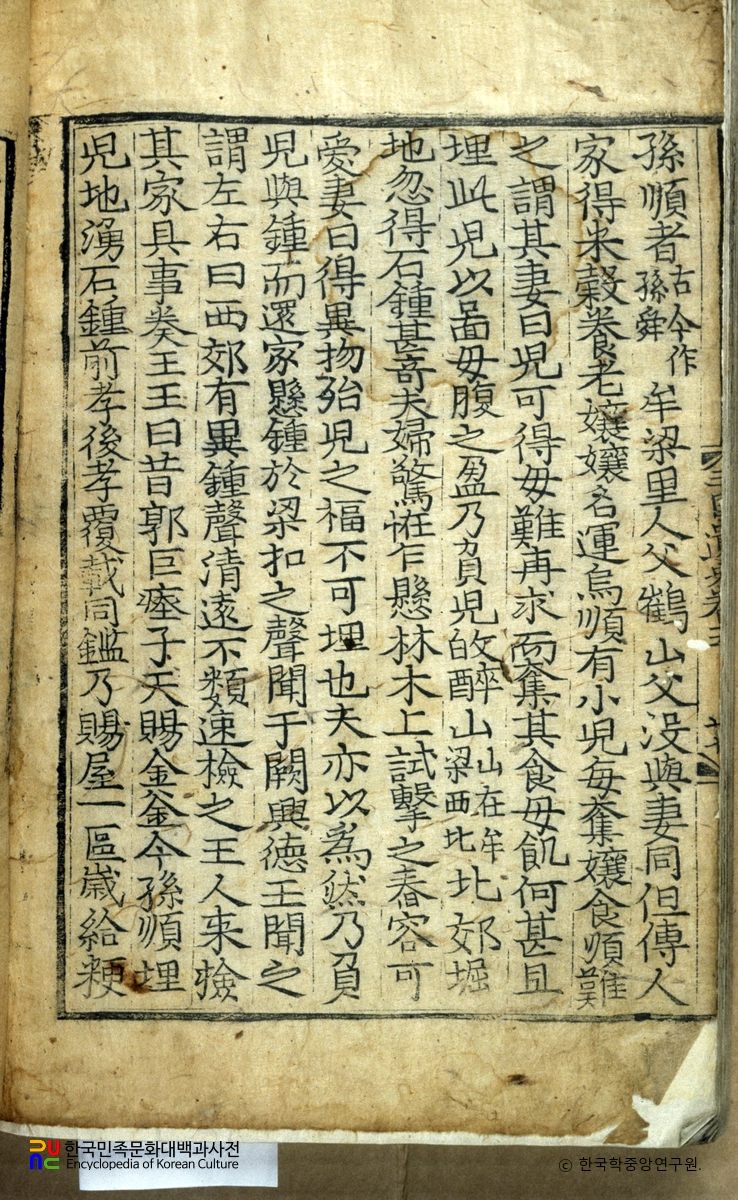 孫順者古今作孫舜牟梁里人父鶴山父没與妻同但傳人
家得米穀養老孃孃名運烏順有小兒每奪孃食順難
之謂其妻曰兒可得母難再求而奪其食母飢何甚且
埋此兒以啚母腹之盈乃負兒皈醉山山在牟梁西北北郊堀
地忽得石鍾甚奇夫婦驚恠乍懸林木上試擊之舂容可
愛妻曰得異物殆兒之福不可埋也夫亦以爲然乃負
兒與鍾而還家懸鍾於梁扣之聲聞于闕興德王聞之
謂左右曰西郊有異鍾聲清遠不類速檢之王人来檢
其家具事奏王王曰昔郭巨瘞子天賜金釜今孫順埋
兒地湧石鍾前孝後孝覆載同鑑乃賜屋一區歲給粳
한국민족문화대백과사전
Encyclopedia of Korean Culture
© 한국학중앙연구원.